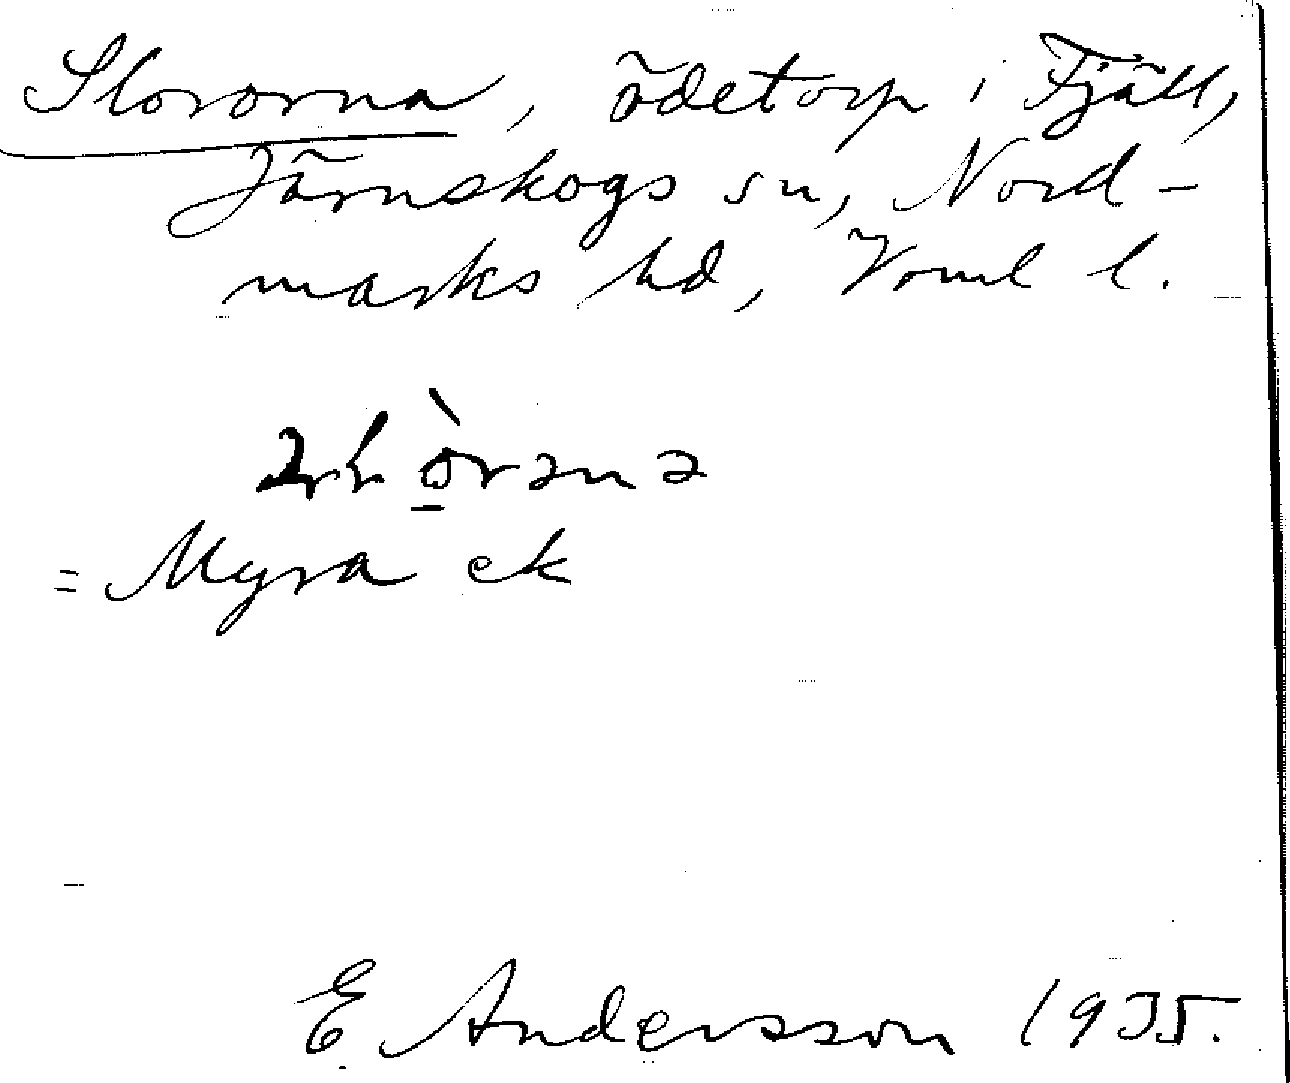 Slororna, ödetorp i Fjäll,
Järnskogs sn, Nord-
marks hd, Vrml l.
= Myra ek
E Andersson 1935.